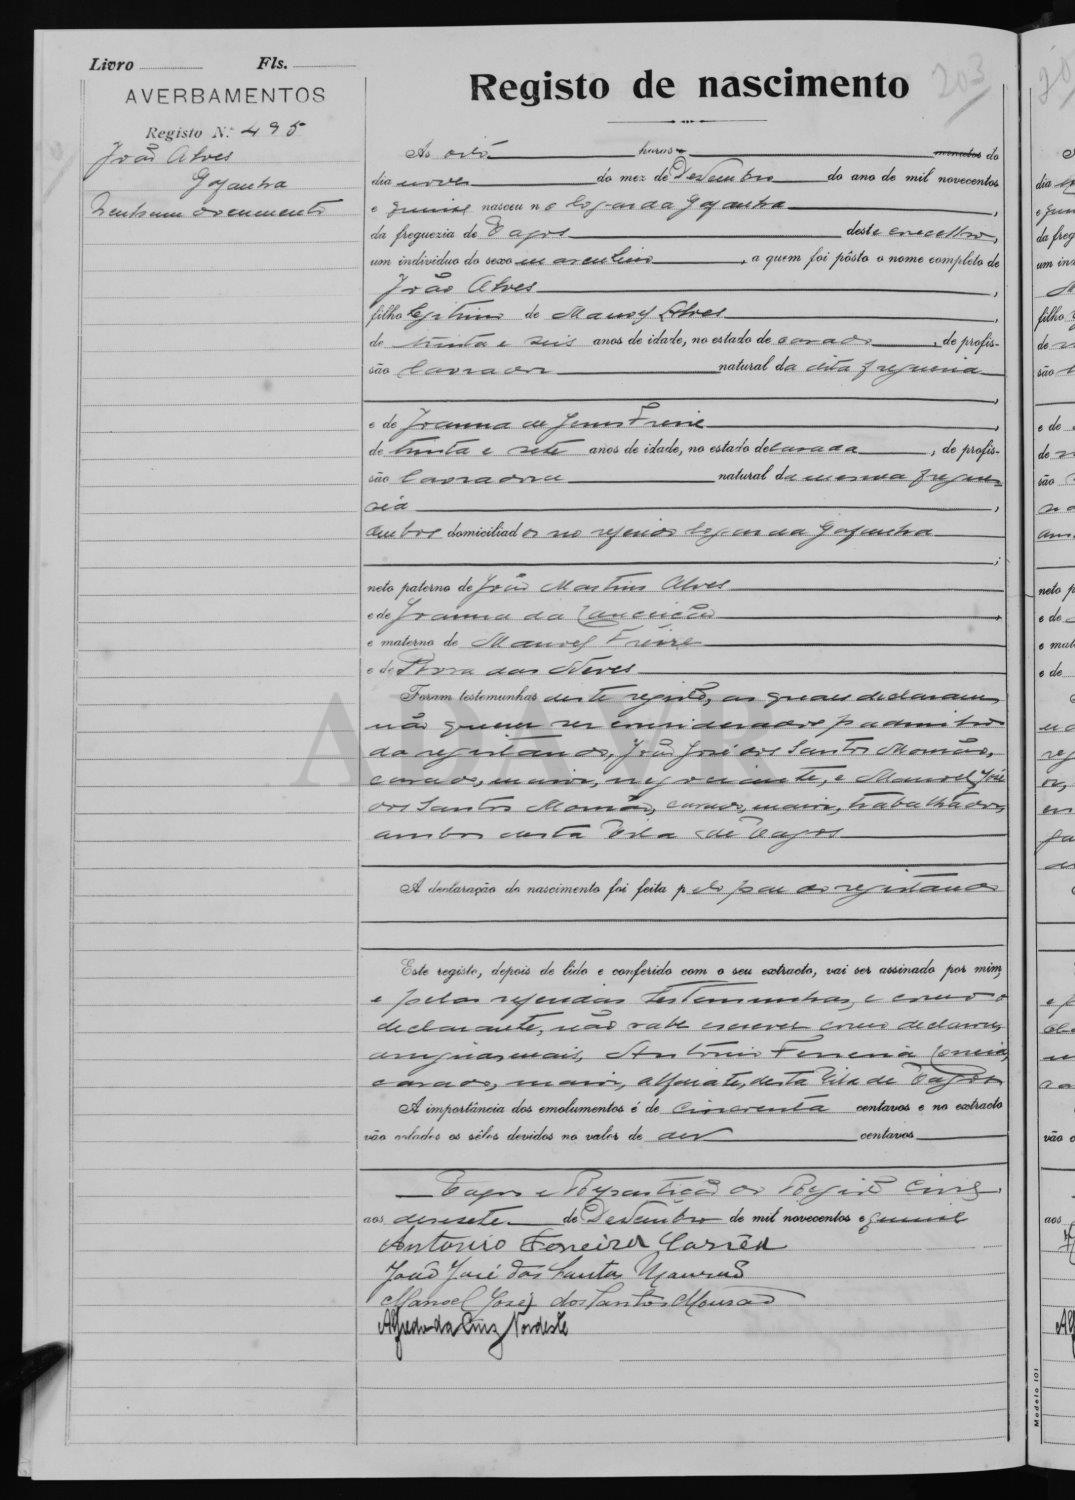 Livro Fls.
203
AVERBAMENTOS
Registo de nascimento
Registo N.º 495
João Alves
Gafanha
Nenhum documento
Ás oito horas minutos do
dia nove do mez de Dezembro do ano de mil novecentos
e quinze nasceu no logar da Gafanha,
da freguezia de Vagos deste concelho,
um individuo do sexo masculino, a quem foi pôsto o nome completo de
João Alves,
filho legitimo de Manoel Alves,
de trinta e seis anos de idade, no estado de casado, de profis-
são lavrador natural da dita freguezia
,
e de Joanna de Jesus Freire,
de trinta e sete anos de idade, no estado de casada, de profis-
são lavradora natural da mesma fregue-
sia,
ambos domiciliados no referido logar da Gafanha
;
neto paterno de João Martins Alves
e de Joanna da Conceição,
e materno de Manoel Freire
e de Roza das Neves
Foram testemunhas deste registo, as quaes declararam
não querer ser considerados padrinhos
do registando, João José dos Santos Mourão,
casado, maior, negociante, e Manoel José
dos Santos Mourão, casado, maior, trabalhador,
ambos desta Vila de Vagos
A declaração do nascimento foi feita pelo pae do registando
Este registo, depois de lido e conferido com o seu extracto, vai ser assinado por mim,
e pelas referidas testemunhas, e como o
declarante, não sabe escrever como declarou,
assignas mais, António Ferreira Correia,
casado, maior, alfaiate, desta Vila de Vagos
A importância dos emolumentos é de cincoenta centavos e no extracto
vão colados os sêlos devidos no valor de dez centavos
Vagos e Repartição do Registo Civil,
aos dezesete de Dezembro de mil novecentos e quinze
Antonio Ferreira Corrêa
João José dos Santos Mourão
Manoel José dos Santos Mourão
Alfredo da Cruz Nordeste
ADAVR
Modelo 101